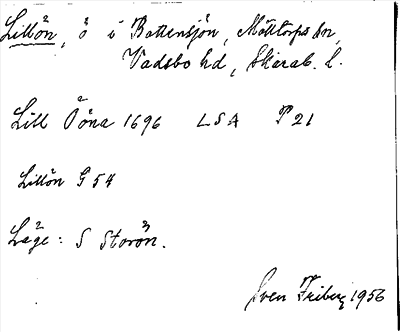 Lillön, ö i Bottensjön, Mölltorps sn,
Vadsbo hd, Skarab. l.
Lill Ööna 1696 LSA P21
Lillön G54
Läge: S Storön.
Sven Friberg 1956